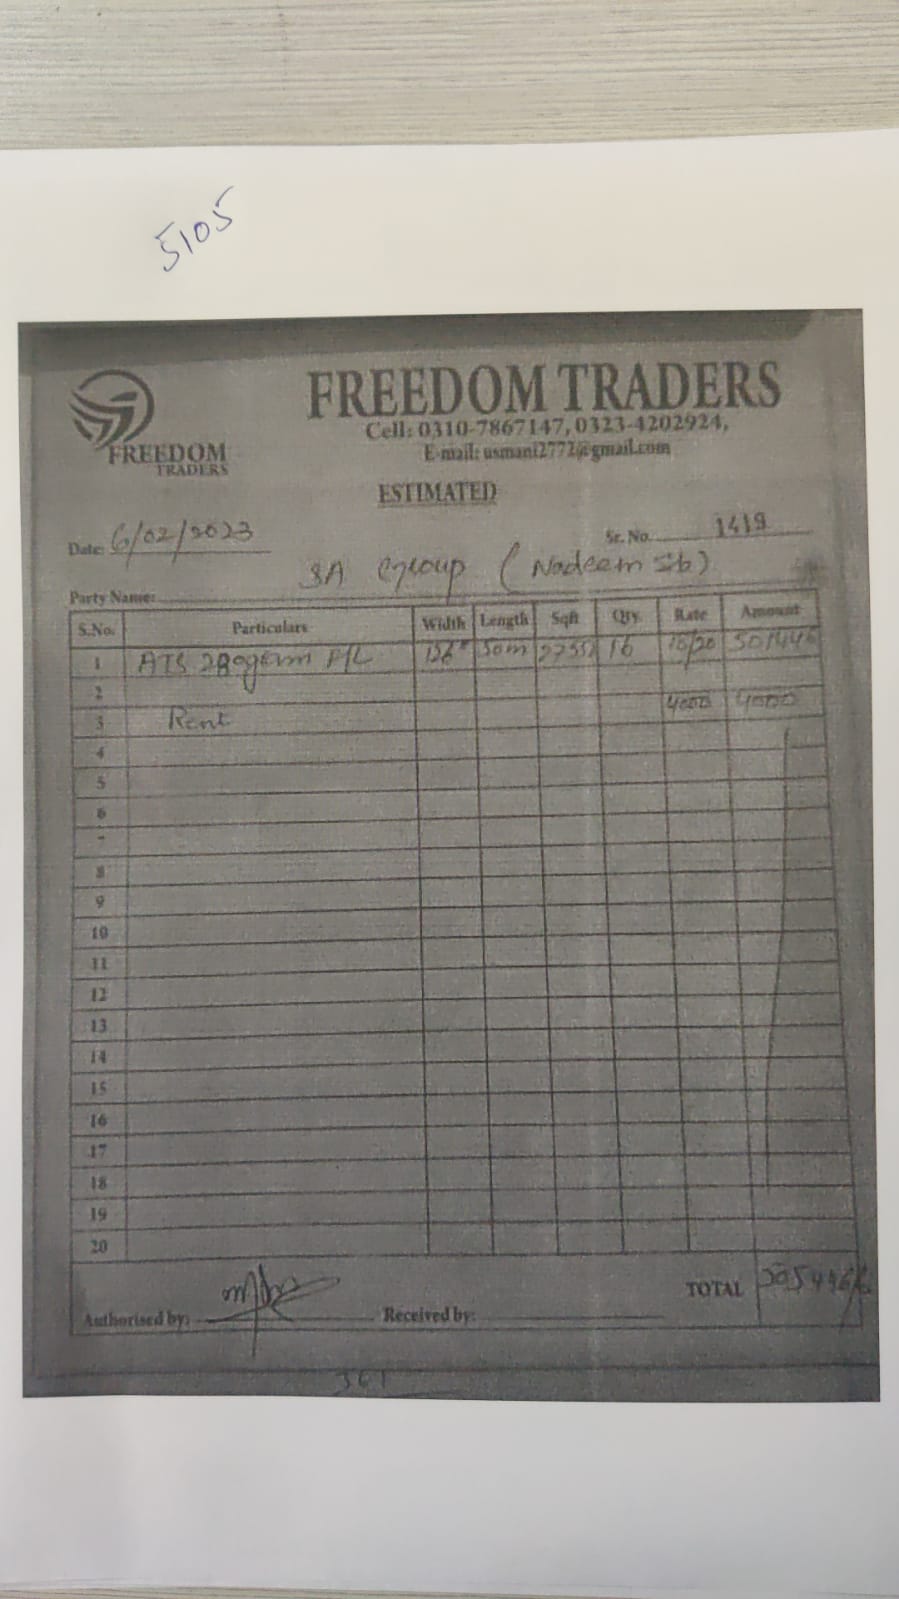 5105
FREEDOM TRADERS
Cell: 0310-7867147, 0323-4202924,
E-mail: usmani2772@gmail.com
FREEDOM
TRADERS
ESTIMATED
Date: 6/02/2023 Sr. No. 1419
Party Name: 3A Group (Nadeem Sb)
S.No. Particulars Width Length Sqft Qty. Rate Amount
1 ATS 280gsm F/L 126" 50m 16 501446
2
3 Rent 4000 4000
4
5
6
7
8
9
10
11
12
13
14
15
16
17
18
19
20
TOTAL 505446/
Authorised by: Received by:
361